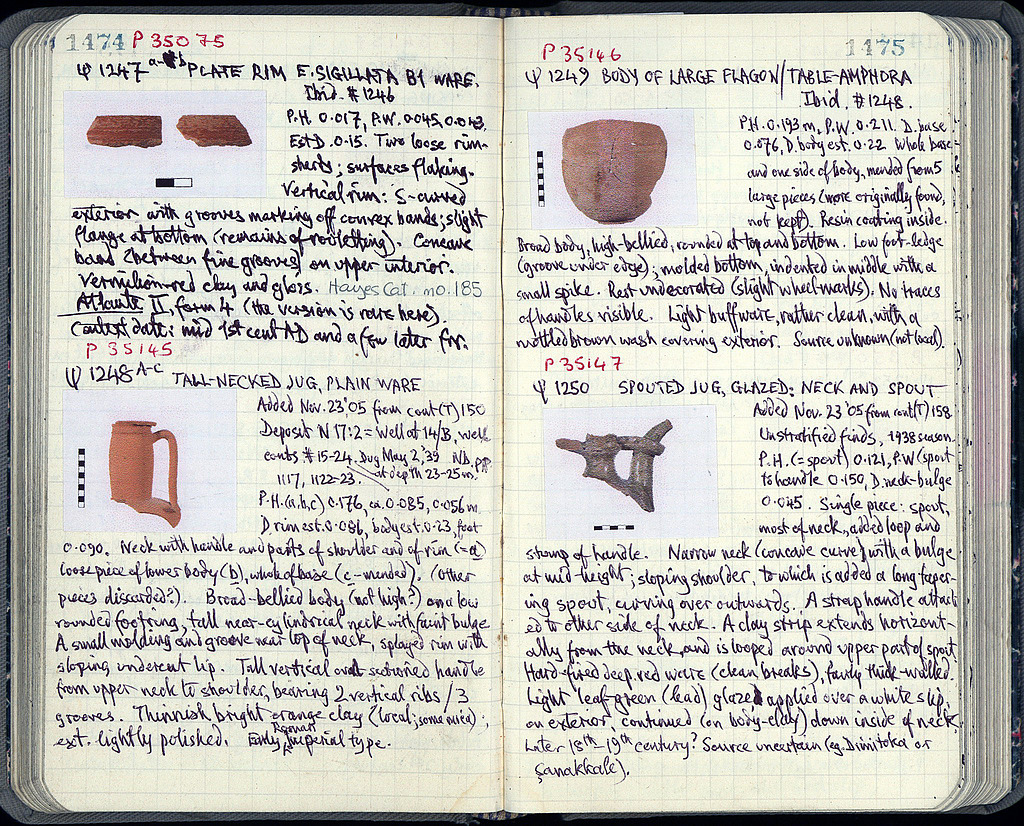 1474 P 35075
Ψ 1247 a-b PLATE RIM E. SIGILLATA B1 WARE.
Ibid. #1246
P.H. 0.017, P.W. 0.045, 0.043.
Est D. 0.15. Two loose rim-
sherds; surfaces flaking.
Vertical rim: S-curved
exterior with grooves marking off convex bands; slight
flange at bottom (remains of rouletting). Concave
band (between fine grooves) on upper interior.
Vermilion-red clay and gloss. Hayes Cat. no. 185
Atlante II, form 4 (the version is rare here).
Context date: mid 1st cent AD and a few later frr.
P 35145
Ψ 1248 A-C TALL-NECKED JUG, PLAIN WARE
Added Nov. 23 '05 from cont (T) 150
Deposit N 17:2 = Well at 14/B, well
conts. #15-24. Dug May 2, '39 NB. pp.
1117, 1122-23. at depth 23-25m.
P.H. (a,b,c) 0.176, ca. 0.085, 0.056 m.
D rim est. 0.086, body est. 0.23, foot
0.090. Neck with handle and parts of shoulder and of rim (=a)
loose piece of lower body (b), whole of base (c - mended). (Other
pieces discarded?). Broad-bellied body (not high?) on a low
rounded footring, tall near-cylindrical neck with faint bulge.
A small molding and groove near top of neck, splayed rim with
sloping undercut lip. Tall vertical oval-sectioned handle
from upper neck to shoulder, bearing 2 vertical ribs / 3
grooves. Thinnish bright orange clay (local; some mica);
ext. lightly polished. Early Roman Imperial type.
1475
P 35146
Ψ 1249 BODY OF LARGE FLAGON / TABLE-AMPHORA
Ibid. #1248.
P.H. 0.193 m, P.W. 0.211. D. base
0.076, D. body est. 0.22 Whole base
and one side of body, mended from 5
large pieces (more originally found,
not kept). Resin coating inside.
Broad body, high-bellied, rounded at top and bottom. Low foot-ledge
(groove under edge); molded bottom, indented in middle with a
small spike. Rest undecorated (slight wheel-marks). No traces
of handles visible. Light buff ware, rather clean, with a
mottled brown wash covering exterior. Source unknown (not local).
P 35147
Ψ 1250 SPOUTED JUG, GLAZED: NECK AND SPOUT
Added Nov. 23 '05 from cont (T) 158.
Unstratified finds, 1938 season.
P.H. (= spout) 0.121, P.W (spout
to handle 0.150, D. neck-bulge
0.045. Single piece: spout,
most of neck, added loop and
stump of handle. Narrow neck (concave curve) with a bulge
at mid-height; sloping shoulder, to which is added a long taper-
ing spout, curving over outwards. A strap handle attach
ed to other side of neck. A clay strip extends horizont-
ally from the neck, and is looped around upper part of spout.
Hard-fired deep red ware (clean breaks), fairly thick-walled.
Light 'leaf-green' (lead) glaze applied over a white slip,
on exterior, continued (on body-clay) down inside of neck.
Later 18th - 19th century? Source uncertain (eg. Dimitoka or
Çanakkale).